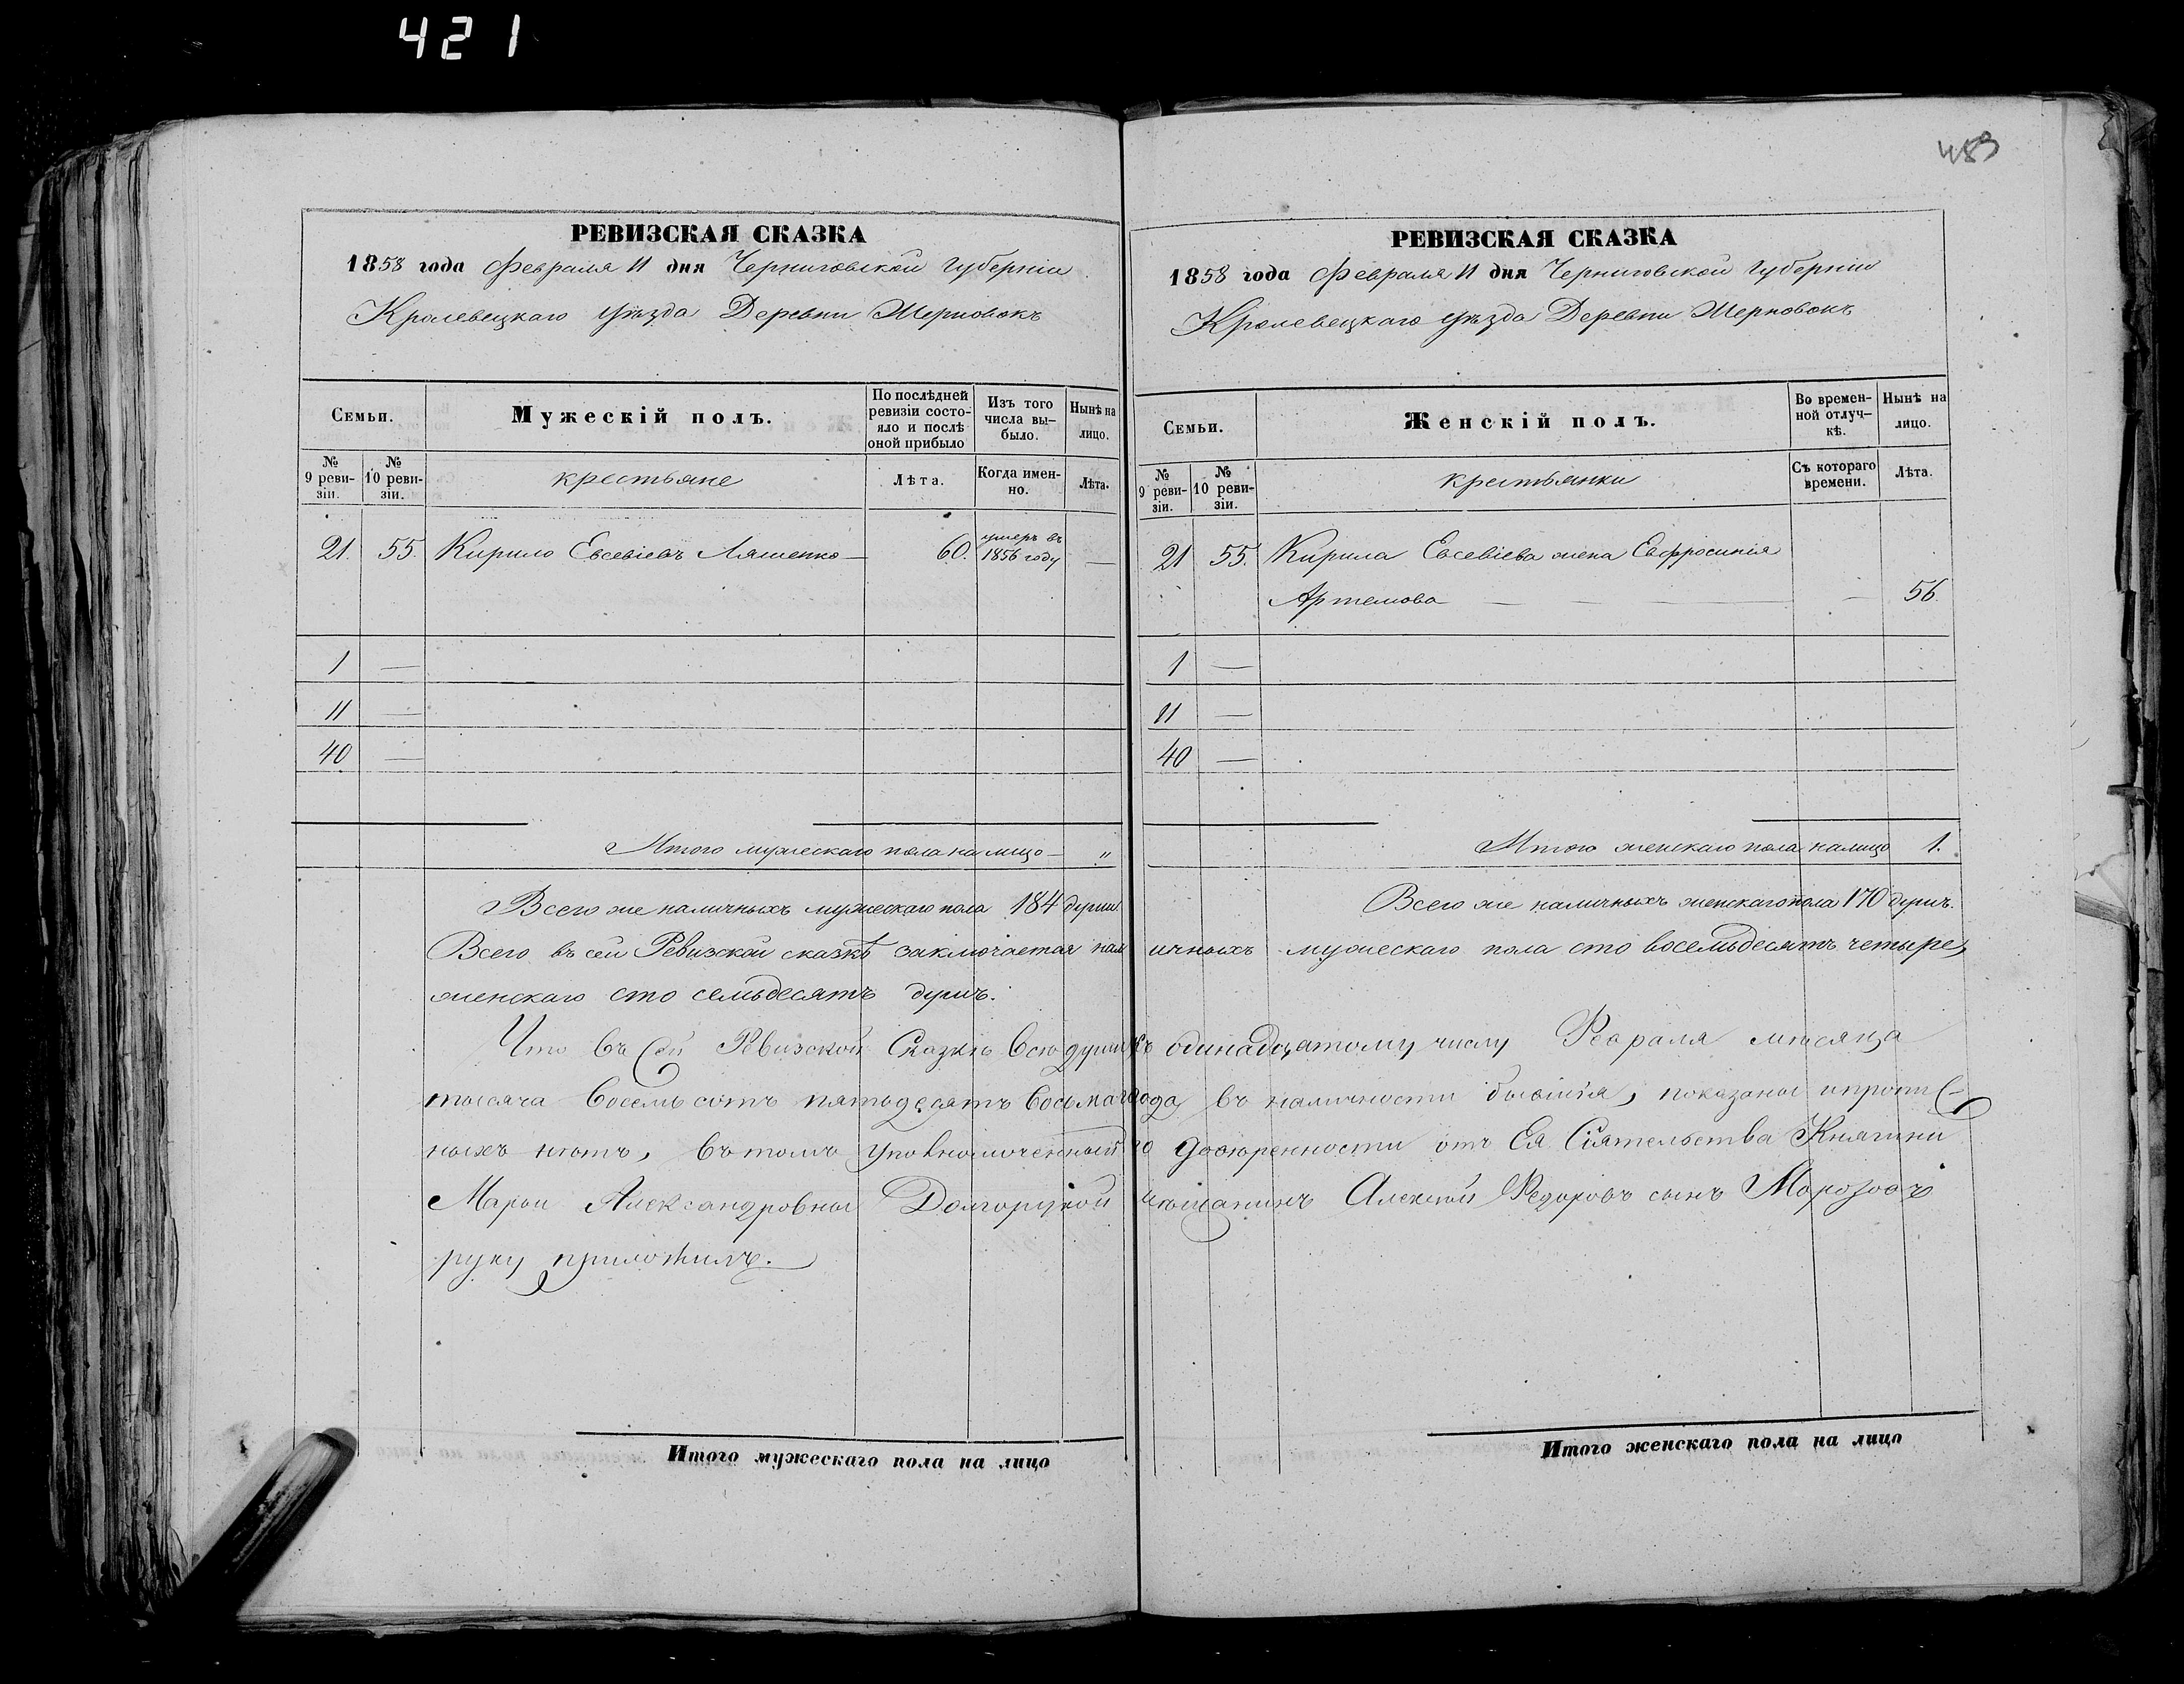 421
489
РЕВИЗСКАЯ СКАЗКА
1858 года Февраля 11 дня Черниговской Губерніи
Кролевецкаго Уѣзда Деревни Жерновокъ
Семьи.
Мужескій полъ.
По послѣдней ревизіи состояло и послѣ оной прибыло
Изъ того числа выбыло.
Нынѣ на лицо.
№ 9 ревизіи.
№ 10 ревизіи.
крестьяне
Лѣта.
Когда именно.
Лѣта.
21. 55. Кирило Евсевіевъ Ляшенко — 60. умеръ въ 1856 году —
1 —
11 —
40 —
Итого мужескаго пола на лицо — "
Всего же наличныхъ мужескаго пола 184 души.
РЕВИЗСКАЯ СКАЗКА
1858 года Февраля 11 дня Черниговской Губерніи
Кролевецкаго Уѣзда Деревни Жерновокъ
Семьи.
Женскій полъ.
Во временной отлучкѣ.
Нынѣ на лицо.
№ 9 ревизіи.
№ 10 ревизіи.
крестьянки
Съ котораго времени.
Лѣта.
21 55. Кирила Евсевіева жена Евфросинія
Артемова — — — — 56.
1 —
11 —
40 —
Итого женскаго пола налицо 1.
Всего же наличныхъ женскаго пола 170 душъ.
Всего въ сей Ревизской сказкѣ заключается наличныхъ мужескаго пола сто восемьдесятъ четыре,
женскаго сто семьдесятъ душъ.
Что въ сей Ревизской Сказкѣ всѣ души къ одинадцатому числу Февраля мѣсяца
тысяча восемьсотъ пятьдесятъ восьмаго года, въ наличности бывшія, показаны и пропис-
ныхъ нѣтъ, въ томъ уполномоченный по довѣренности отъ Ея Сіятельства Княгини
Марьи Александровны Долгорукой мѣщанинъ Алексѣй Федоровъ сынъ Морозовъ
руку приложилъ.
Итого мужескаго пола на лицо
Итого женскаго пола на лицо